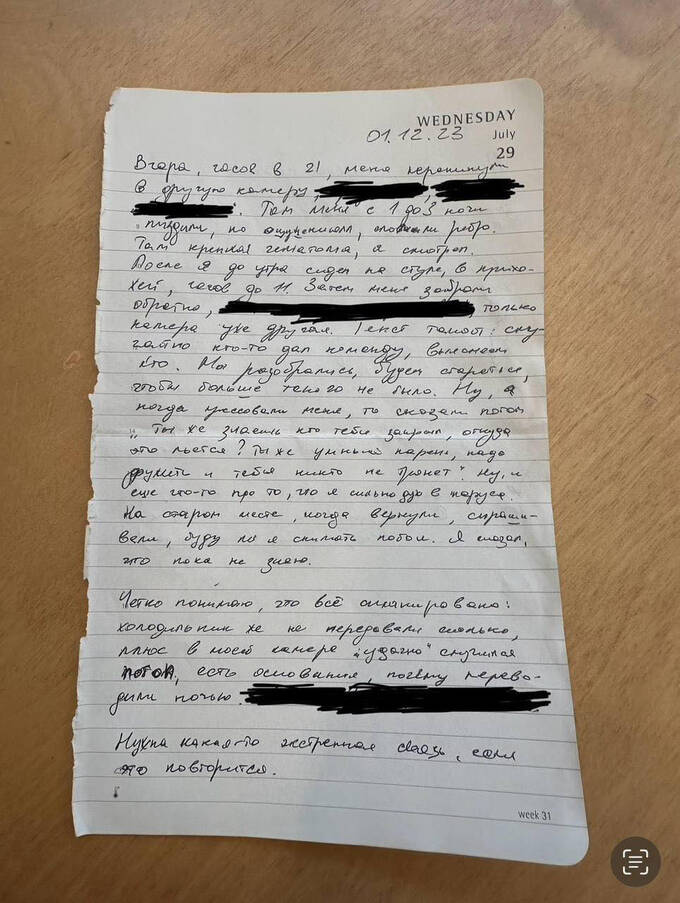 WEDNESDAY
01.12.23 July
29
Вчара, часов в 21, меня перекинули
в другую камеру,
Там меня с 1 до 3 ночи
пиздили, по ощущениям, сломали ребро.
Там крепкая гематома, я смотрел.
После я до утра сидел на стуле, в прихо-
жей, часов до 11. Затем меня забрали
обратно, только
камера уже другая. Текст такой: слу-
чайно кто-то дал команду, выясняем
кто. Мы разобрались, будем стараться,
чтобы больше такого не было. Ну, а
когда прессовали меня, то сказали потом
„Ты же знаешь кто тебя закрыл, откуда
это льется? Ты же умный парень, надо
дружить и тебя никто не тронет". Ну, и
еще что-то про то, что я сильно дую в паруса.
На старом месте, когда вернули, спраши-
вали, буду ли я снимать побои. Я сказал,
что пока не знаю.
Четко понимаю, что всё спланировано:
холодильник же не передавали сколько,
плюс в моей камере „удачно" случился
потоп, есть основания, почему перево-
дили ночью
Нужна какая-то экстренная связь, если
это повторится.
week 31